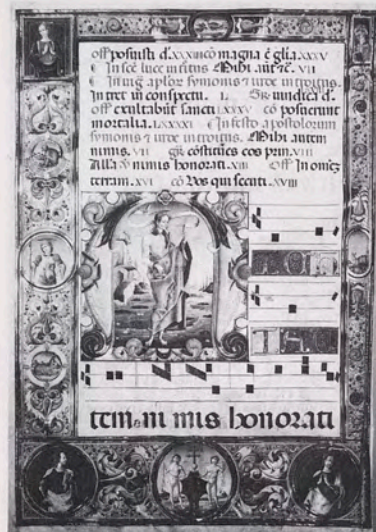 off posuisti d. xxxiii cō magna ē gl̄ia. xxxv
In sc̄e luce in titus Mihi aut ē. vii
In uig aplor symonis z iude introitus.
In tret in conspectu. i. Gr. uindica d.
off exultabūt sancti lxxxv cō posuerunt
mortalia. lxxxxi In festo apostolorum
symonis z iude introitus. Mihi autem
nimis. vii gr̄ cōstitues eos prin. viii
Alla ℣ nimis honorati. xiii Off In omnē
terram. xvi cō Vos qui secuti. xviii
tem. ni mis honorati